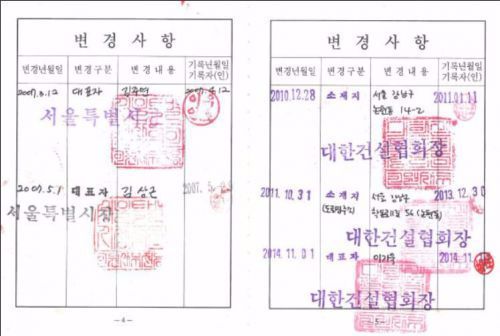 변경사항
변경년월일 변경구분 변경내용 기록년월일
기록자(인)
대표자
서울특별시장
2007.5.1 대표자 2007.5.
서울특별시장
- 4 -
변경사항
변경년월일 변경구분 변경내용 기록년월일
기록자(인)
2010.12.28 소재지 서울 강남구 2011.01.11
논현동 14-2
대한건설협회장
2011.10.31 소재지 서울 강남구 2013.12.30
(도로명주소) 56 (논현동)
대한건설협회장
2014.11.01 대표자 2014.11.
대한건설협회장
- 5 -